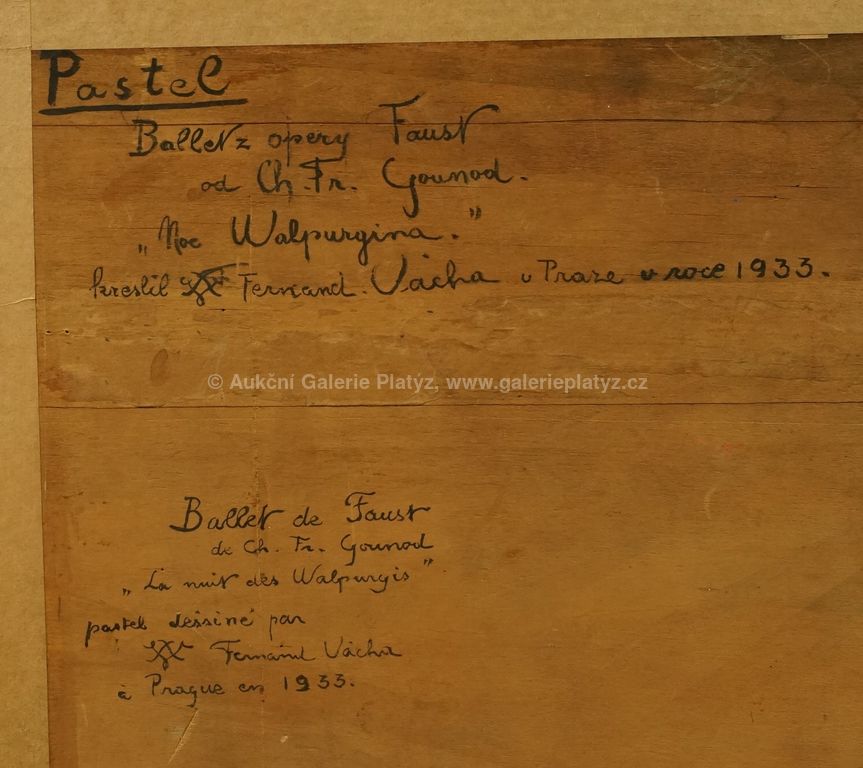 Pastel
Ballet z opery Faust
od Ch. Fr. Gounod.
„Noc Walpurgina."
kreslil Fernand Vácha v Praze v roce 1933.
© Aukční Galerie Platýz, www.galerieplatyz.cz
Ballet de Faust
de Ch. Fr. Gounod
„La nuit des Walpurgis"
pastel dessiné par
Fernand Vácha
à Prague en 1933.